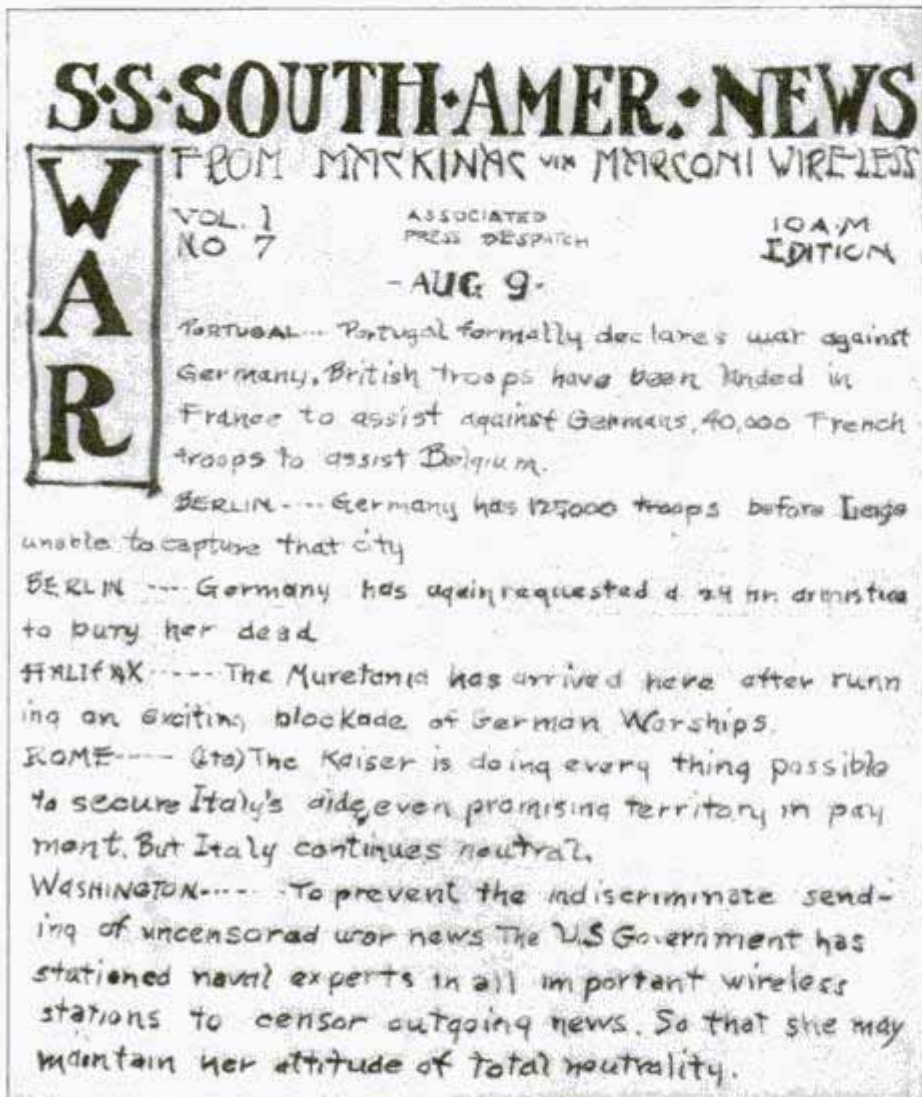 S·S·SOUTH·AMER.·NEWS
WAR
FROM MACKINAC VIA MARCONI WIRELESS
VOL. 1
NO 7
ASSOCIATED
PRESS DESPATCH
10 A.M
EDITION
- AUG 9 -
PORTUGAL--- Portugal formally declares war against
Germany. British troops have been landed in
France to assist against Germans. 40,000 French
troops to assist Belgium.
BERLIN---- Germany has 125000 troops before Leige
unable to capture that city
BERLIN ---- Germany has again requested a 24 hr. armistice
to bury her dead
HALIFAX ----- The Muretania has arrived here after runn
ing an exciting blockade of German Worships.
ROME---- (Ita) The Kaiser is doing every thing possible
to secure Italy's aide, even promising territory in pay
ment. But Italy continues neutral.
WASHINGTON----- To prevent the indiscriminate send-
ing of uncensored wor news The U.S Government has
stationed naval experts in all important wireless
stations to censor outgoing news. So that she may
maintain her attitude of total neutrality.